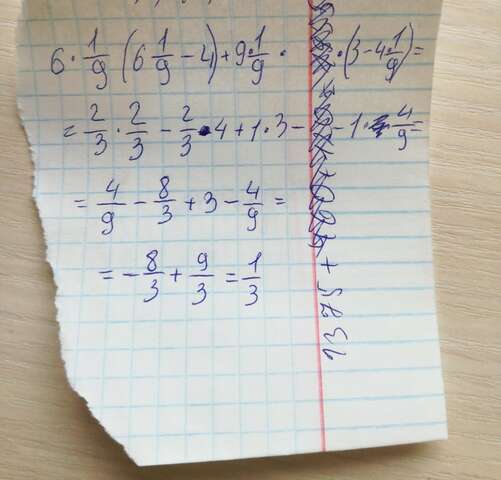 6 · 1/9 (6 1/9 - 4) + 9 · 1/9 · · (3 - 4 · 1/9) =
= 2/3 · 2/3 - 2/3 · 4 + 1 · 3 - - 1 · 4/9 =
= 4/9 - 8/3 + 3 - 4/9 =
= - 8/3 + 9/3 = 1/3